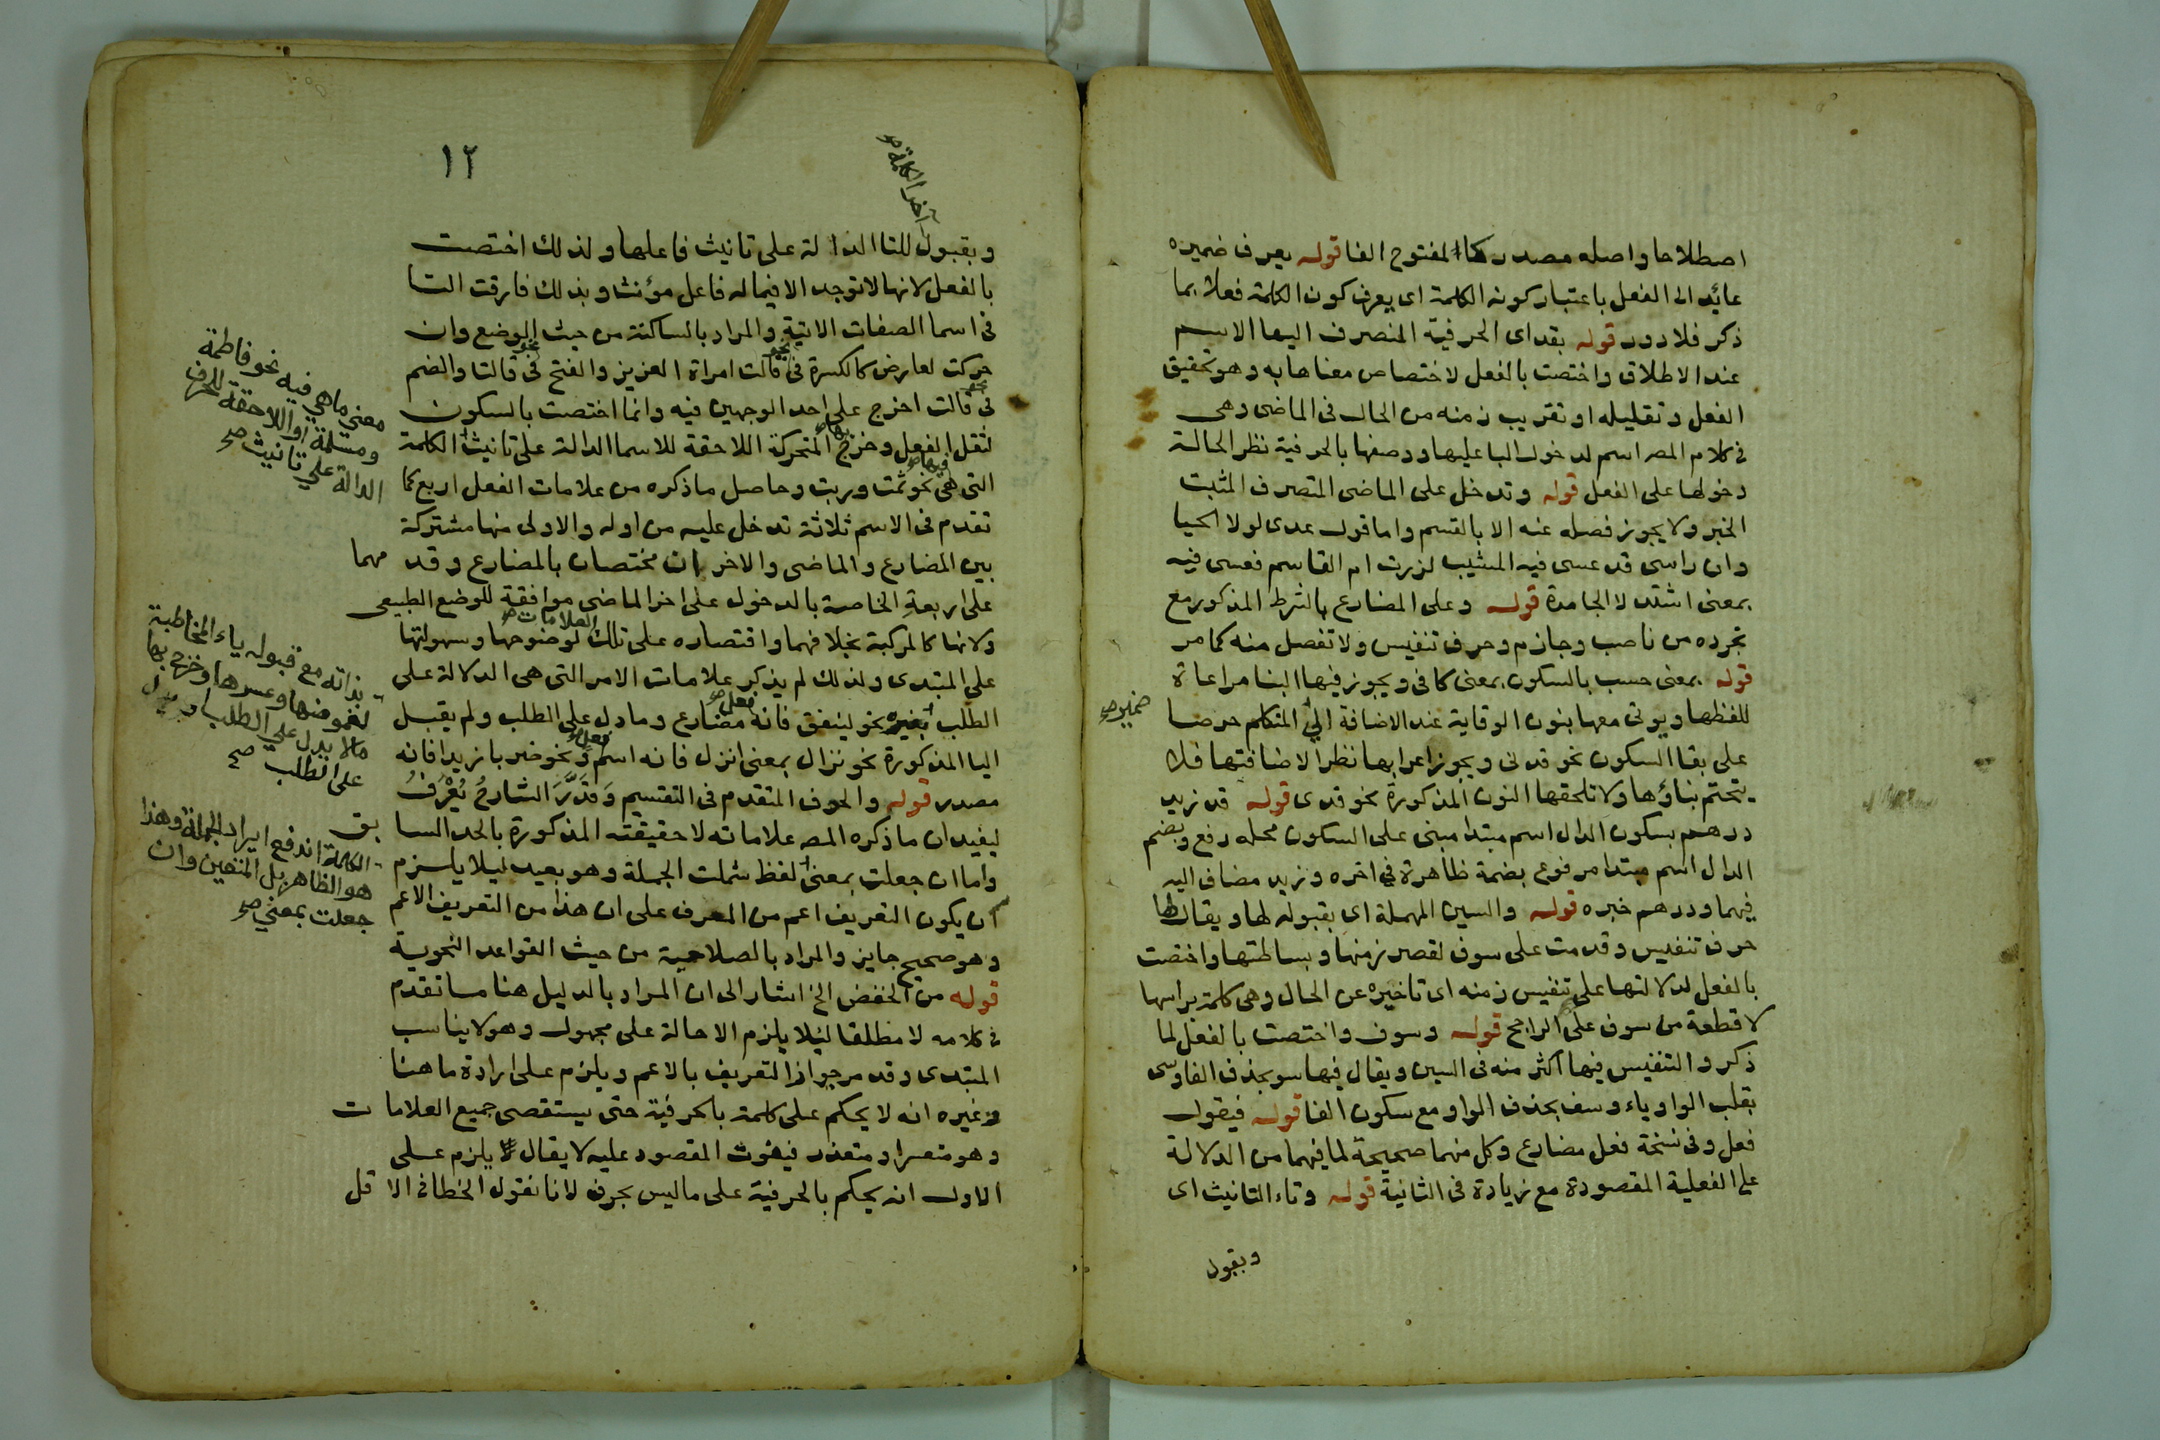 اصطلاحا واصله مصدر كالمفتوح الفا قوله يعرف ضميره
عائد الى الفعل باعتبار كونه الكلمة اى يعرف كون الكلمة فعلا بما
ذكر فلا دور قوله بقد اى الحرفية المنصرف اليها الاسم
عند الاطلاق واختصت بالفعل لاختصاص معناها به وهو تحقيق
الفعل وتقليله او تقريب زمنه من الحال فى الماضى وهى
فى كلام المصـ اسم لدخول البا عليها ووصفها بالحرفية نظر الحالة
دخولها على الفعل قوله وتدخل على الماضى المتصرف المثبت
الخبر ولا يجوز فصله عنه الا بالقسم واما قول عدى لولا الحيا
وان راسى قد عسى فيه المشيب لزرت ام القاسم فعسى فيه
بمعنى اشتد لا الجامدة قوله وعلى المضارع بالشرط المذكور مع
تجرده من ناصب وجازم وحرف تنفيس ولا تفصل منه كما مر
قوله بمعنى حسب بالسكون بمعنى كافى ويجوز فيها البنا مراعاة
للفظها ويوتى معها بنون الوقاية عند الاضافة الى المتكلم حرصا
ضمير صح
على بقا السكون نحو قدنى ويجوز اعرابها نظرا لاضافتها فلا
يتحتم بناؤها ولا تلحقها النون المذكورة نحو قدى قوله قد زيد
درهم بسكون الدال اسم مبتدا مبنى على السكون محله رفع وبضم
الدال اسم مبتدا مرفوع بضمة ظاهرة فى اخره وزيد مضاف اليه
فيهما ودرهم خبره قوله والسين المهملة اى بقبوله لها ويقال لها
حرف تنفيس وقدمت على سوف لقصر زمنها وبساطتها واختصت
بالفعل لدلالتها على تنفيس زمنه اى تاخيره عن الحال وهى كلمة براسها
لا قطعة من سوف على الراجح قوله وسوف واختصت بالفعل لما
ذكر والتنفيس فيها اكثر منه فى السين ويقال فيها سو بحذف الفا وسى
بقلب الواو ياء وسف بحذف الواو مع سكون الفا قوله فيقول
فعل وفى نسخة فعل مضارع وكل منهما صحيحة لما فيهما من الدلالة
على الفعلية المقصودة مع زيادة فى الثانية قوله وتاء التانيث اى
وبقبول
١٢
آخر الكلمة صح
وبقبول للتا الدالة على تانيث فاعلها ولذلك اختصت
بالفعل لانها لا توجد الا فيما له فاعل مؤنث وبذلك فارقت التا
فى اسما الصفات الاتية والمراد بالساكنة من حيث الوضع وان
حركت لعارض كالكسرة فى نحو قالت امراة العزيز والفتح فى نحو قالتا والضم
فى نحو قالت اخرج على احد الوجهين فيه وانما اختصت بالسكون
لثقل الفعل وخرج بها المتحركة اللاحقة للاسما الدالة على تانيث الكلمة
التى هى فيها صح نحو ثمت وربت وحاصل ما ذكره من علامات الفعل اربع كما
تقدم فى الاسم ثلاثة تدخل عليه من اوله والاولى منها مشتركة
بين المضارع والماضى والاخران مختصان بالمضارع وقد مهما
على اربعة الخاصة بالدخول على اخر الماضى موافقة للوضع الطبيعى
ولانها كالمركبة بخلافهما واقتصاره على تلك العلامات صح لوضوحها وسهولتها
على المبتدى ولذلك لم يذكر علامات الامر التى هى الدلالة على
الطلب بغيره نحو لينفق فانه فعل صح مضارع وما دل على الطلب ولم يقبل
اليا المذكورة نحو نزال بمعنى انزل فانه اسم فعل ونحو ضربا زيدا فانه
مصدر قوله والحرف المتقدم فى التقسيم وَقَدَّرَ الشارحُ يُعْرَفُ
ليفيد ان ما ذكره المصـ علاماته لا حقيقته المذكورة بالحد السابق
واما ان جعلت بمعنى لفظ شملت الجملة وهو بعيد ليلا يلزم
ان يكون التعريف اعم من المعرف على ان هذا من التعريف الاعم
وهو صحيح جايز والمراد بالصلاحية من حيث القواعد النحوية
قوله من الخفض الخ اشار الى ان المراد بالدليل هنا ما تقدم
فى كلامه لا مطلقا ليلا يلزم الاحالة على مجهول وهو لا يناسب
المبتدى وقد مر جواز التعريف بالاعم ويلزم على ارادة ما هنا
وغيره انه لا يحكم على كلمة بالحرفية حتى يستقصى جميع العلامات
وهو متعسر او متعذر فيفوت المقصود عليه لا يقال يلزم على
الاول انه يحكم بالحرفية على ما ليس بحرف لانا نقول الخطا فى الاقل
معنى ما هي فيه نحو فاطمة
ومسلمة او اللاحقة للحرف
الدالة على تانيث صح
بذاته مع قبوله ياء المخاطبة
لغموضها وعسرها وخرج بها
مالا يدل على الطلب او يدل
على الطلب صح
الكلمة اندفع ايراد الجملة وهذا
هو الظاهر بل المتعين وان
جعلت بمعنى صح